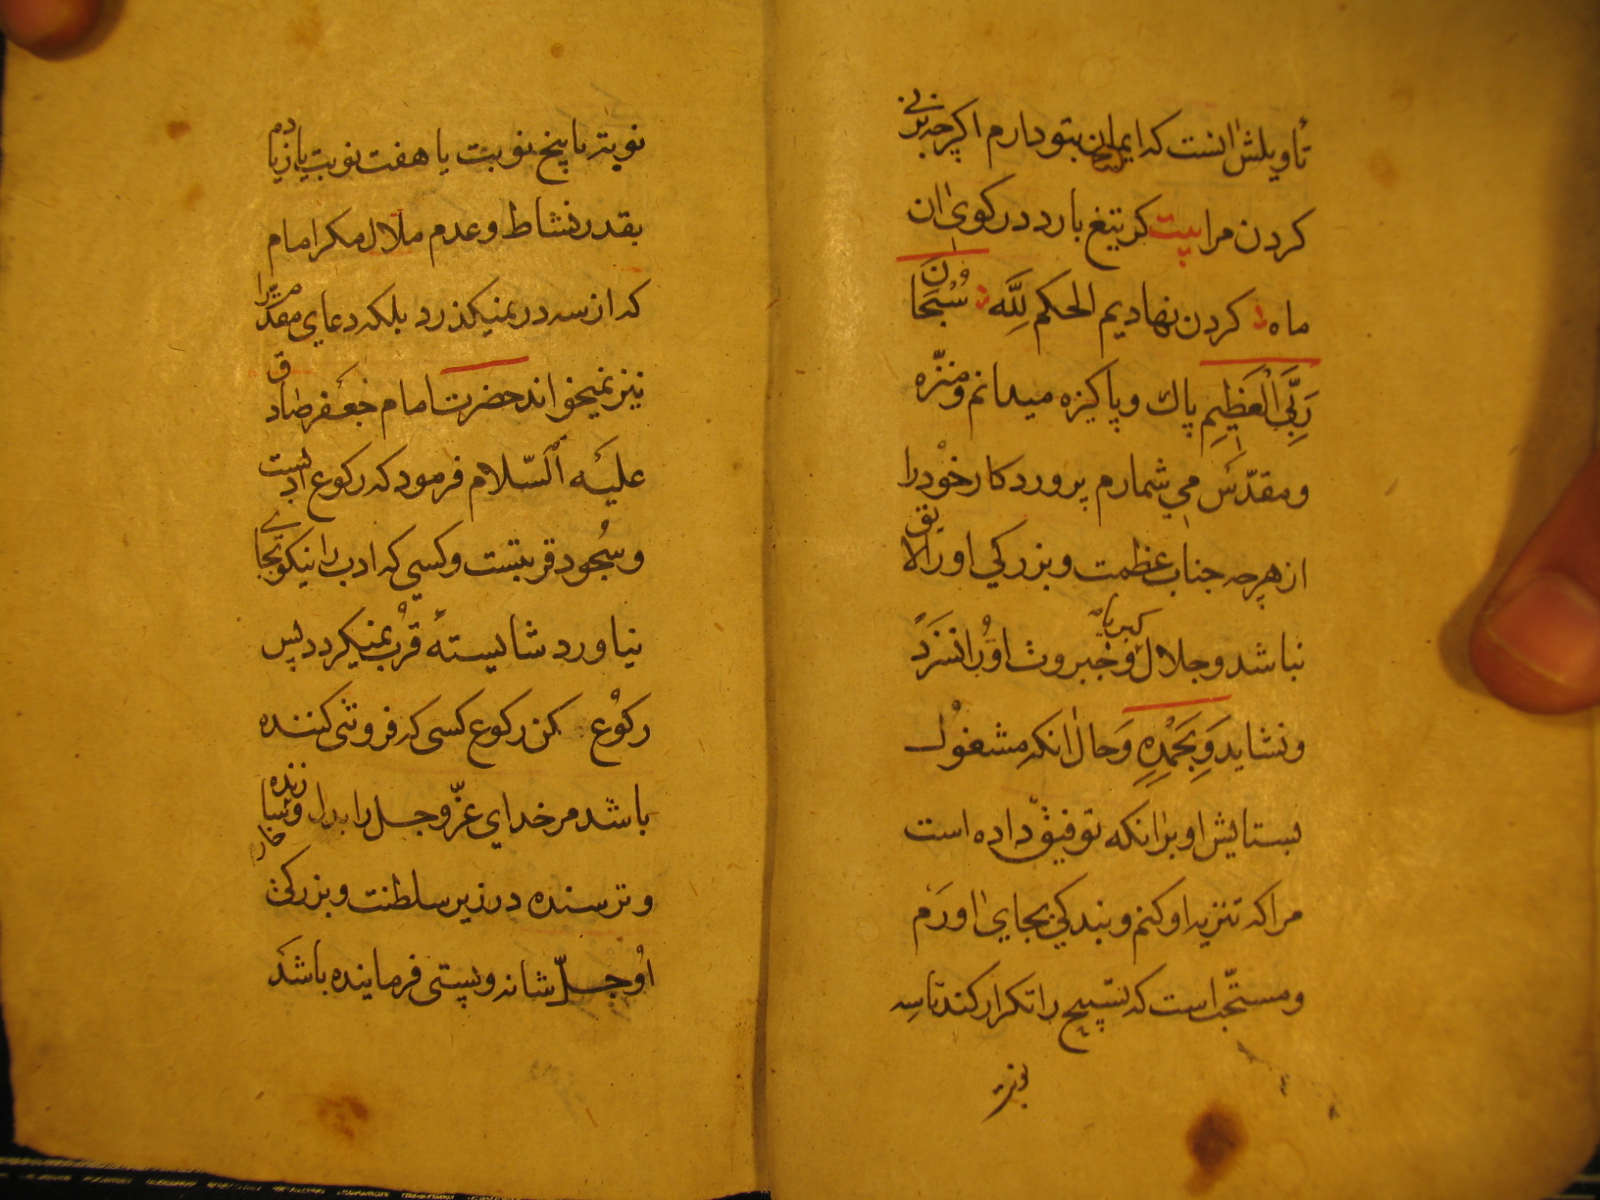 تأویلش انست که ایمان بتو دارم اکرچه بزنی
کردن مرا بیت کر تیغ بارد در کوی ان
ماه کردن نهادیم الحکم لِلّه سُبْحَانَ
رَبِّیَ الْعَظِیمِ پاک و پاکیزه میدانم و منزّه
و مقدّس می شمارم پروردکار خود را
از هرچه جناب عظمت و بزرکی او را لایق
نباشد و جلال و کبریا و جبروت او را نسزد
و نشاید وَبِحَمْدِهِ و حال انکه مشغول
بستایش او برانکه توفیق داده است
مرا که تنزیه او کنم و بندکی بجای اورم
و مستحبّ است که تسبیح را تکرار کند تا سه
نوبة
نوبة تا پنج نوبت یا هفت نوبت یا زیاده
بقدر نشاط و عدم ملال مکر امام
که از سه در نمیکذرد بلکه دعای مقدّر را
نیز نمیخواند حضرت امام جعفر صادق
علیه السّلام فرمود که رکوع ادبست
و سجود قربتست و کسی که ادب را نیکو بجای
نیاورد شایسته قرب نمیکردد پس
رکوع کن رکوع کسی که فروتنی کننده
باشد مر خدای عزّ و جل را بدل و
و ترسنده در زیر سلطنت و بزرکی
او جلّ شانه و پستی فرماینده باشد